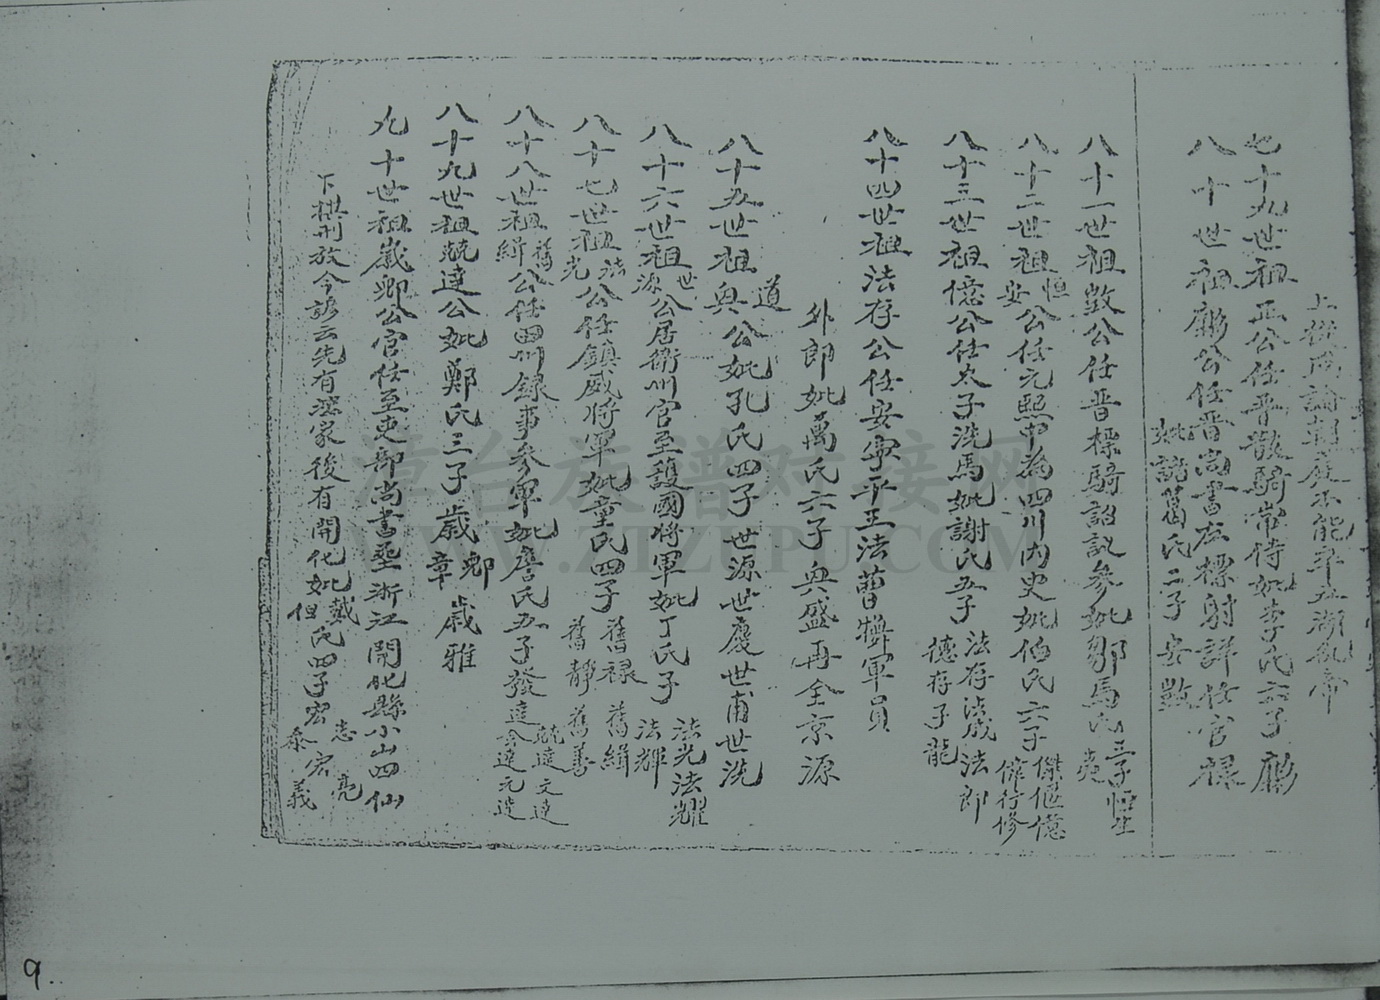 七十九世祖正公任平散騎常侍妣李氏六子彪
八十世祖彪公任晋尚書左標射詳任官祿
妣諸葛氏二子安數
八十一世祖數公任晋標騎詔議參妣鄒馬氏三子恒生
八十二世祖恒安公任元熙中為四川内史妣伯氏六子傑偃億偉行修
八十三世祖億公仕太子洗馬妣謝氏五子法存法成法郎德存子龍
八十四世祖法存公任安寧平王法曹犕軍員
外郎妣萬氏六子與盛再全京源
八十五世祖道與公妣孔氏四子世源世慶世甫世洗
八十六世祖世源公居衛州官至護國將軍妣丁氏子法光法耀法輝
八十七世祖法光公任鎮威將軍妣童氏四子舊祿舊緝舊靜舊善
八十八世祖舊緝公任四川錄事參軍妣詹氏五子發達兢達文達元達
八十九世祖兢達公妣鄭氏三子歲卿歲雅章
九十世祖歲卿公官任至吏部尚書丞浙江開化縣小山四仙
下棋刑放今諺云先有家後有開化妣戴但氏四子宏志宏亮泰義
漳台族谱对接网
WWW.ZTZUPU.COM
9.